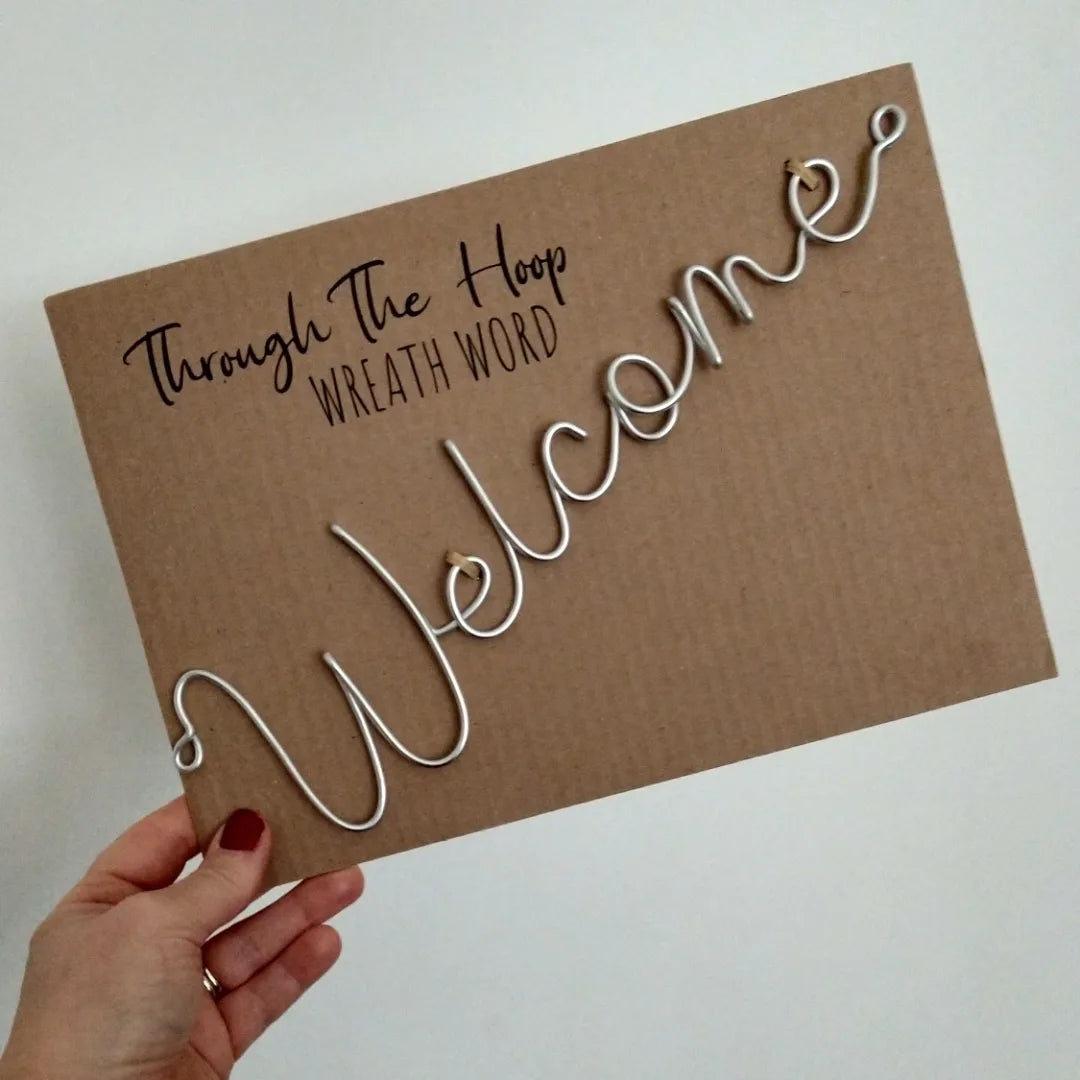 Through The Hoop
WREATH WORD
Welcome